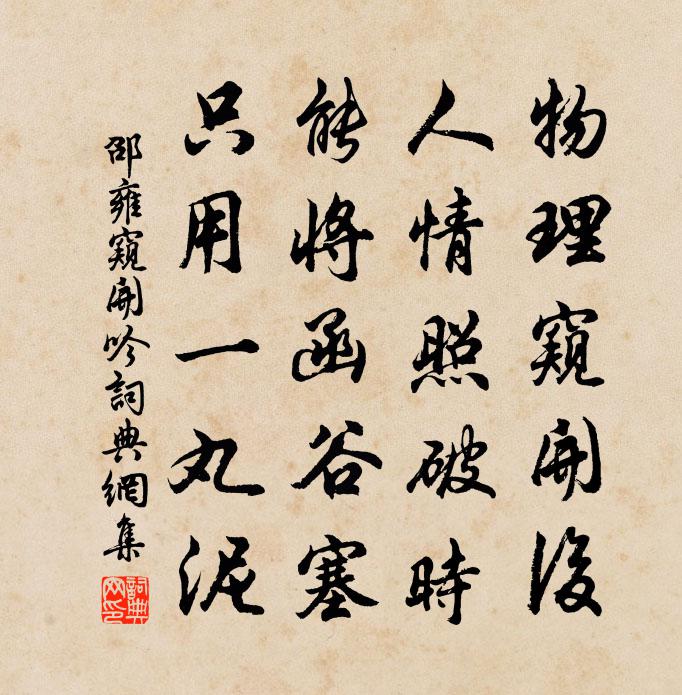 物理窺開後
人情照破時
能將函谷塞
只用一丸泥
邵雍窺開吟詞典網集
詞典網印